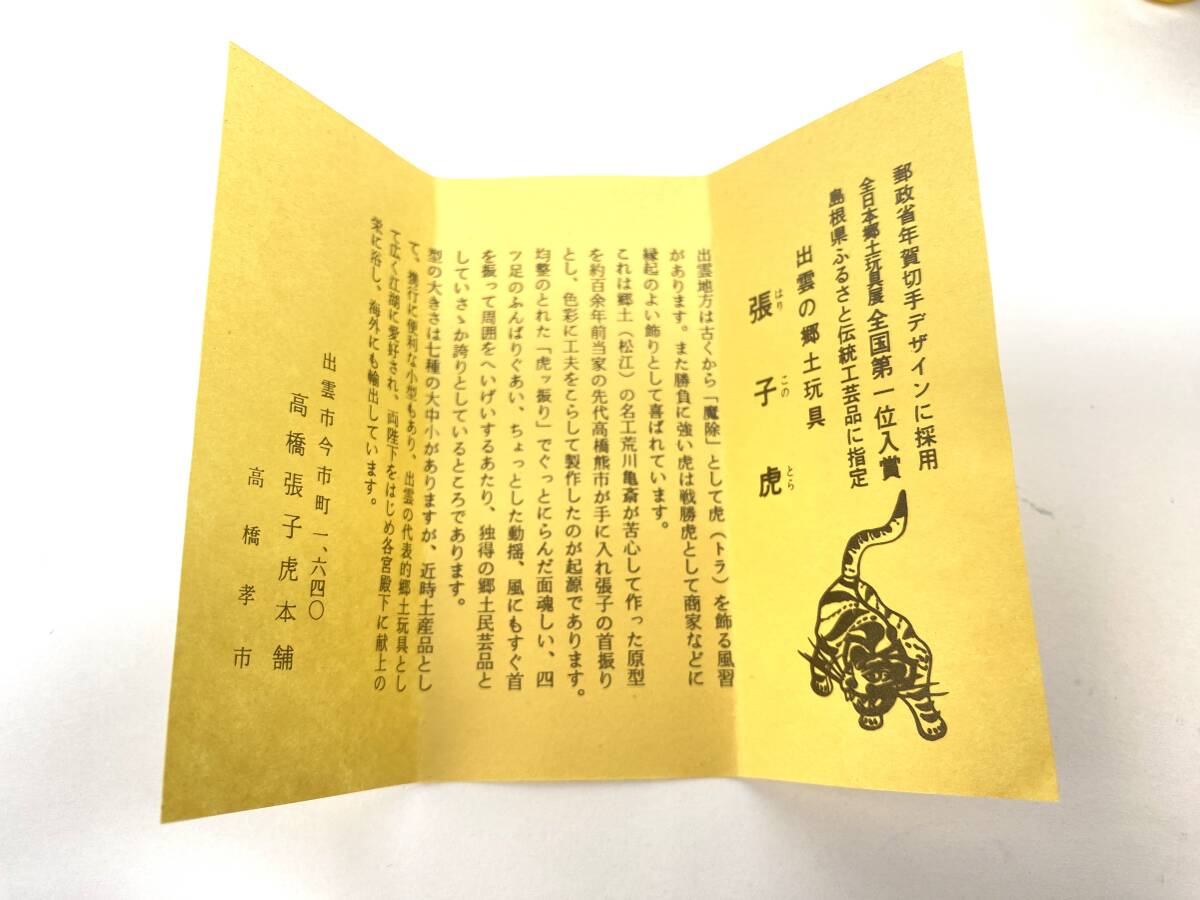 郵政省年賀切手デザインに採用
全日本郷土玩具展全国第一位入賞
島根県ふるさと伝統工芸品に指定
出雲の郷土玩具
張子虎
はり この とら
出雲地方は古くから「魔除」として虎(トラ)を飾る風習
があります。また勝負に強い虎は戦勝虎として商家などに
縁起のよい飾りとして喜ばれています。
これは郷土(松江)の名工荒川亀斎が苦心して作った原型
を約百余年前当家の先代高橋熊市が手に入れ張子の首振り
とし、色彩に工夫をこらして製作したのが起源であります。
均整のとれた「虎ッ振り」でぐっとにらんだ面魂しい、四
ツ足のふんばりぐあい、ちょっとした動揺、風にもすぐ首
を振って周囲をへいげいするあたり、独得の郷土民芸品と
していさゝか誇りとしているところであります。
型の大きさは七種の大中小がありますが、近時土産品とし
て、携行に便利な小型もあり、出雲の代表的郷土玩具とし
て広く江湖に愛好され、両陛下をはじめ各宮殿下に献上の
栄に浴し、海外にも輸出しています。
出雲市今市町一、六四〇
高橋張子虎本舗
高橋孝市